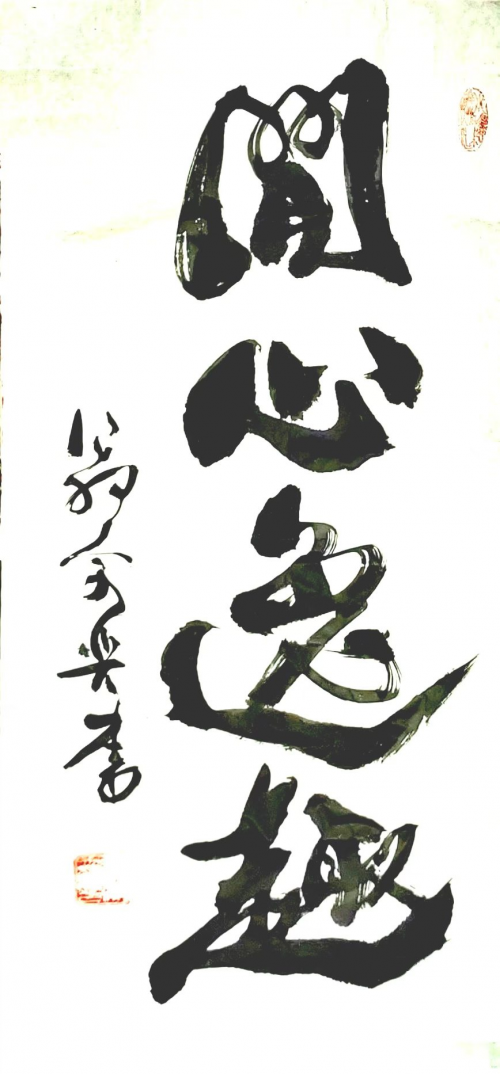 閒心逸趣
翁書